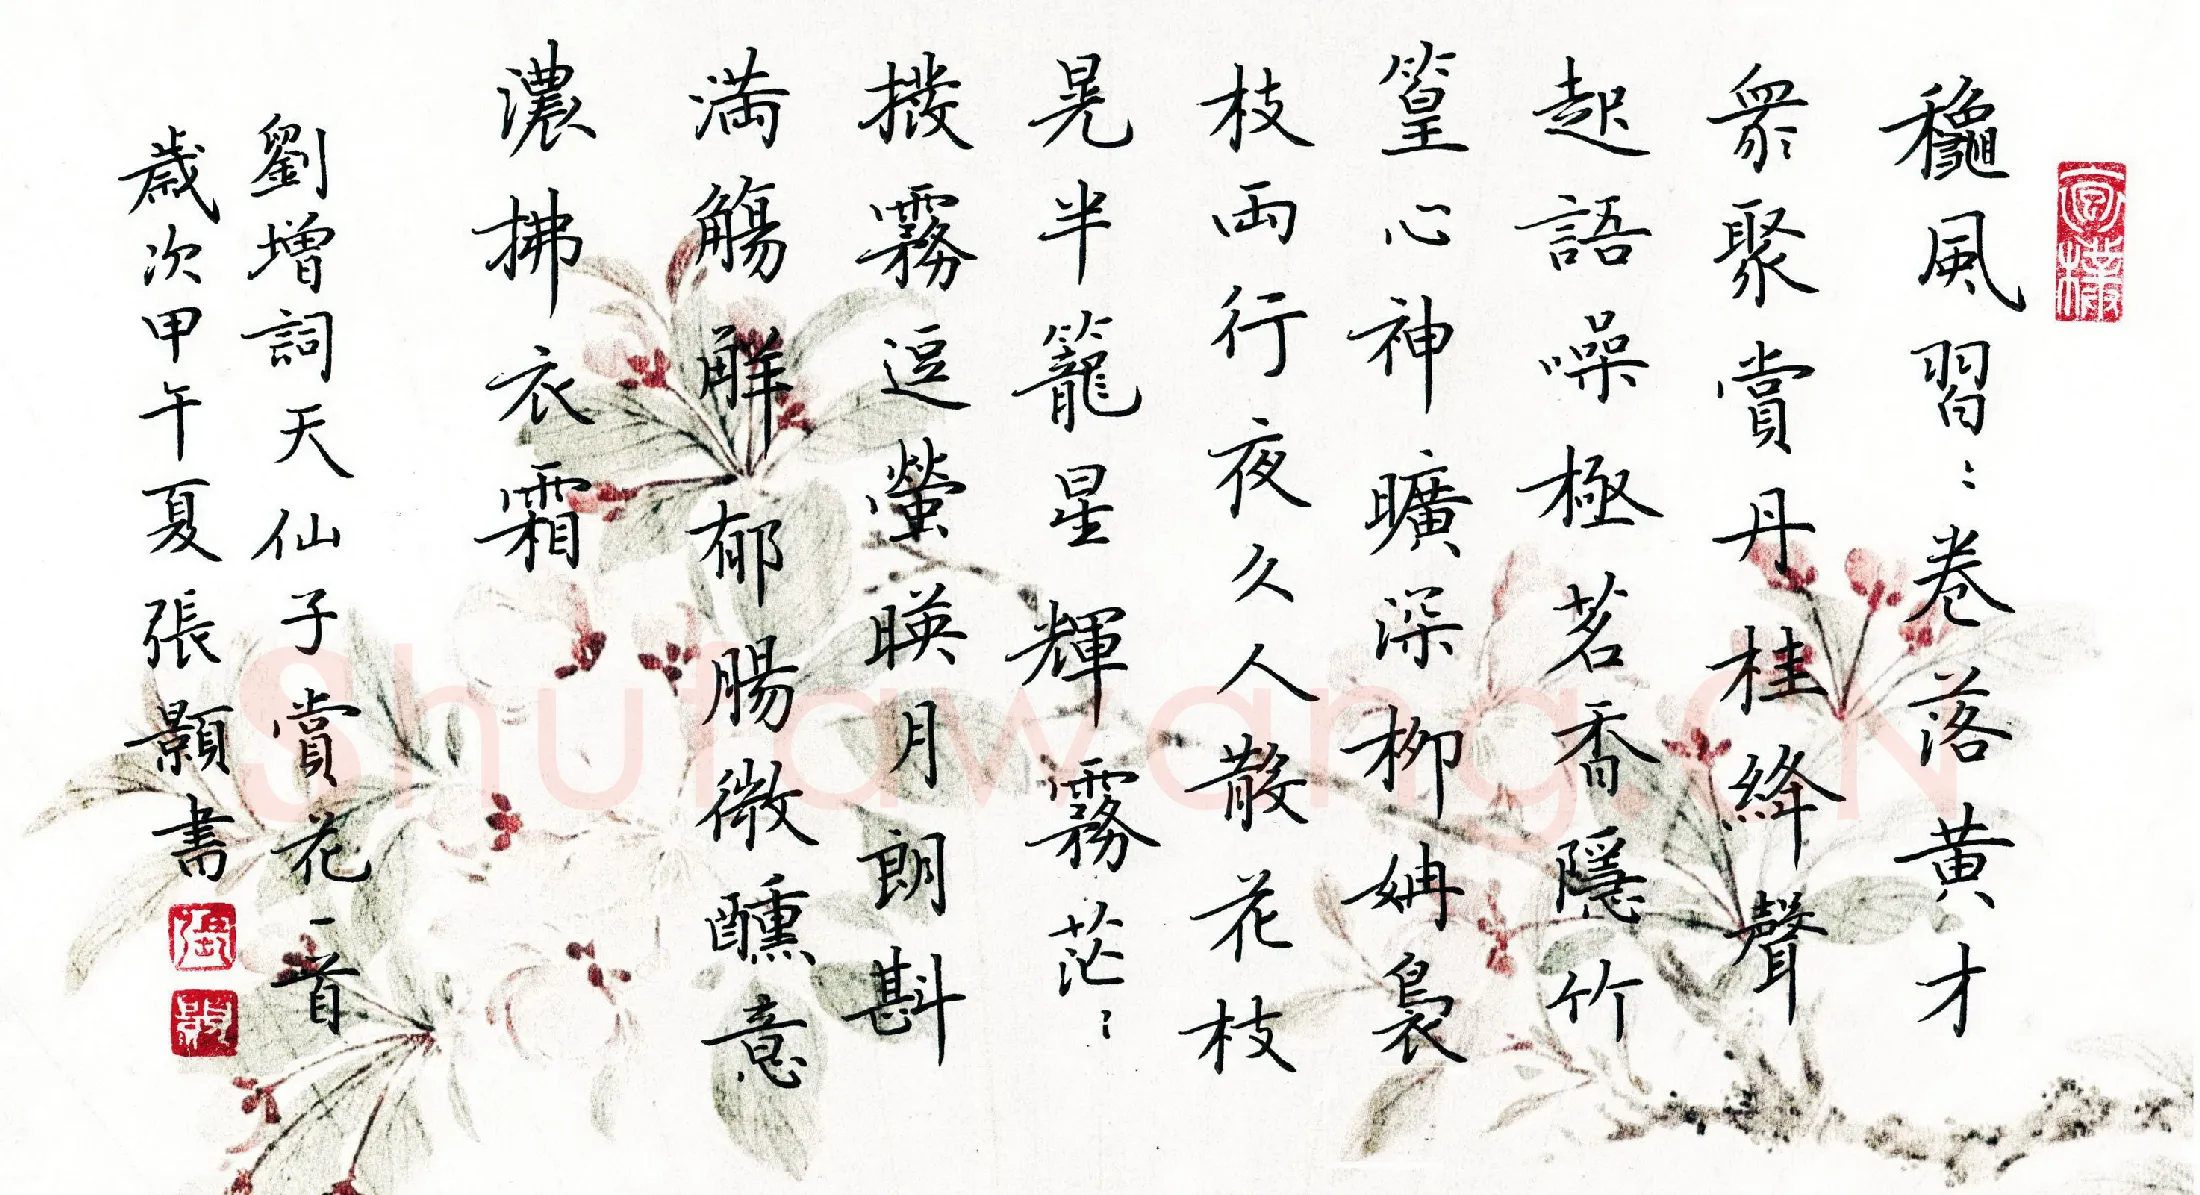 穐風習⺀卷落黄才
衆聚賞丹桂絳聲
起語噪極茗香隱竹
篁心神曠深柳姌裊
枝両行夜久人散花枝
晃半籠星輝霧茫⺀
撥霧逗螢暎月朗斟
満觴觧郁腸微醺意
濃拂衣霜
劉增詞天仙子賞花一首
歲次甲午夏張顥書
Shufawang.CN